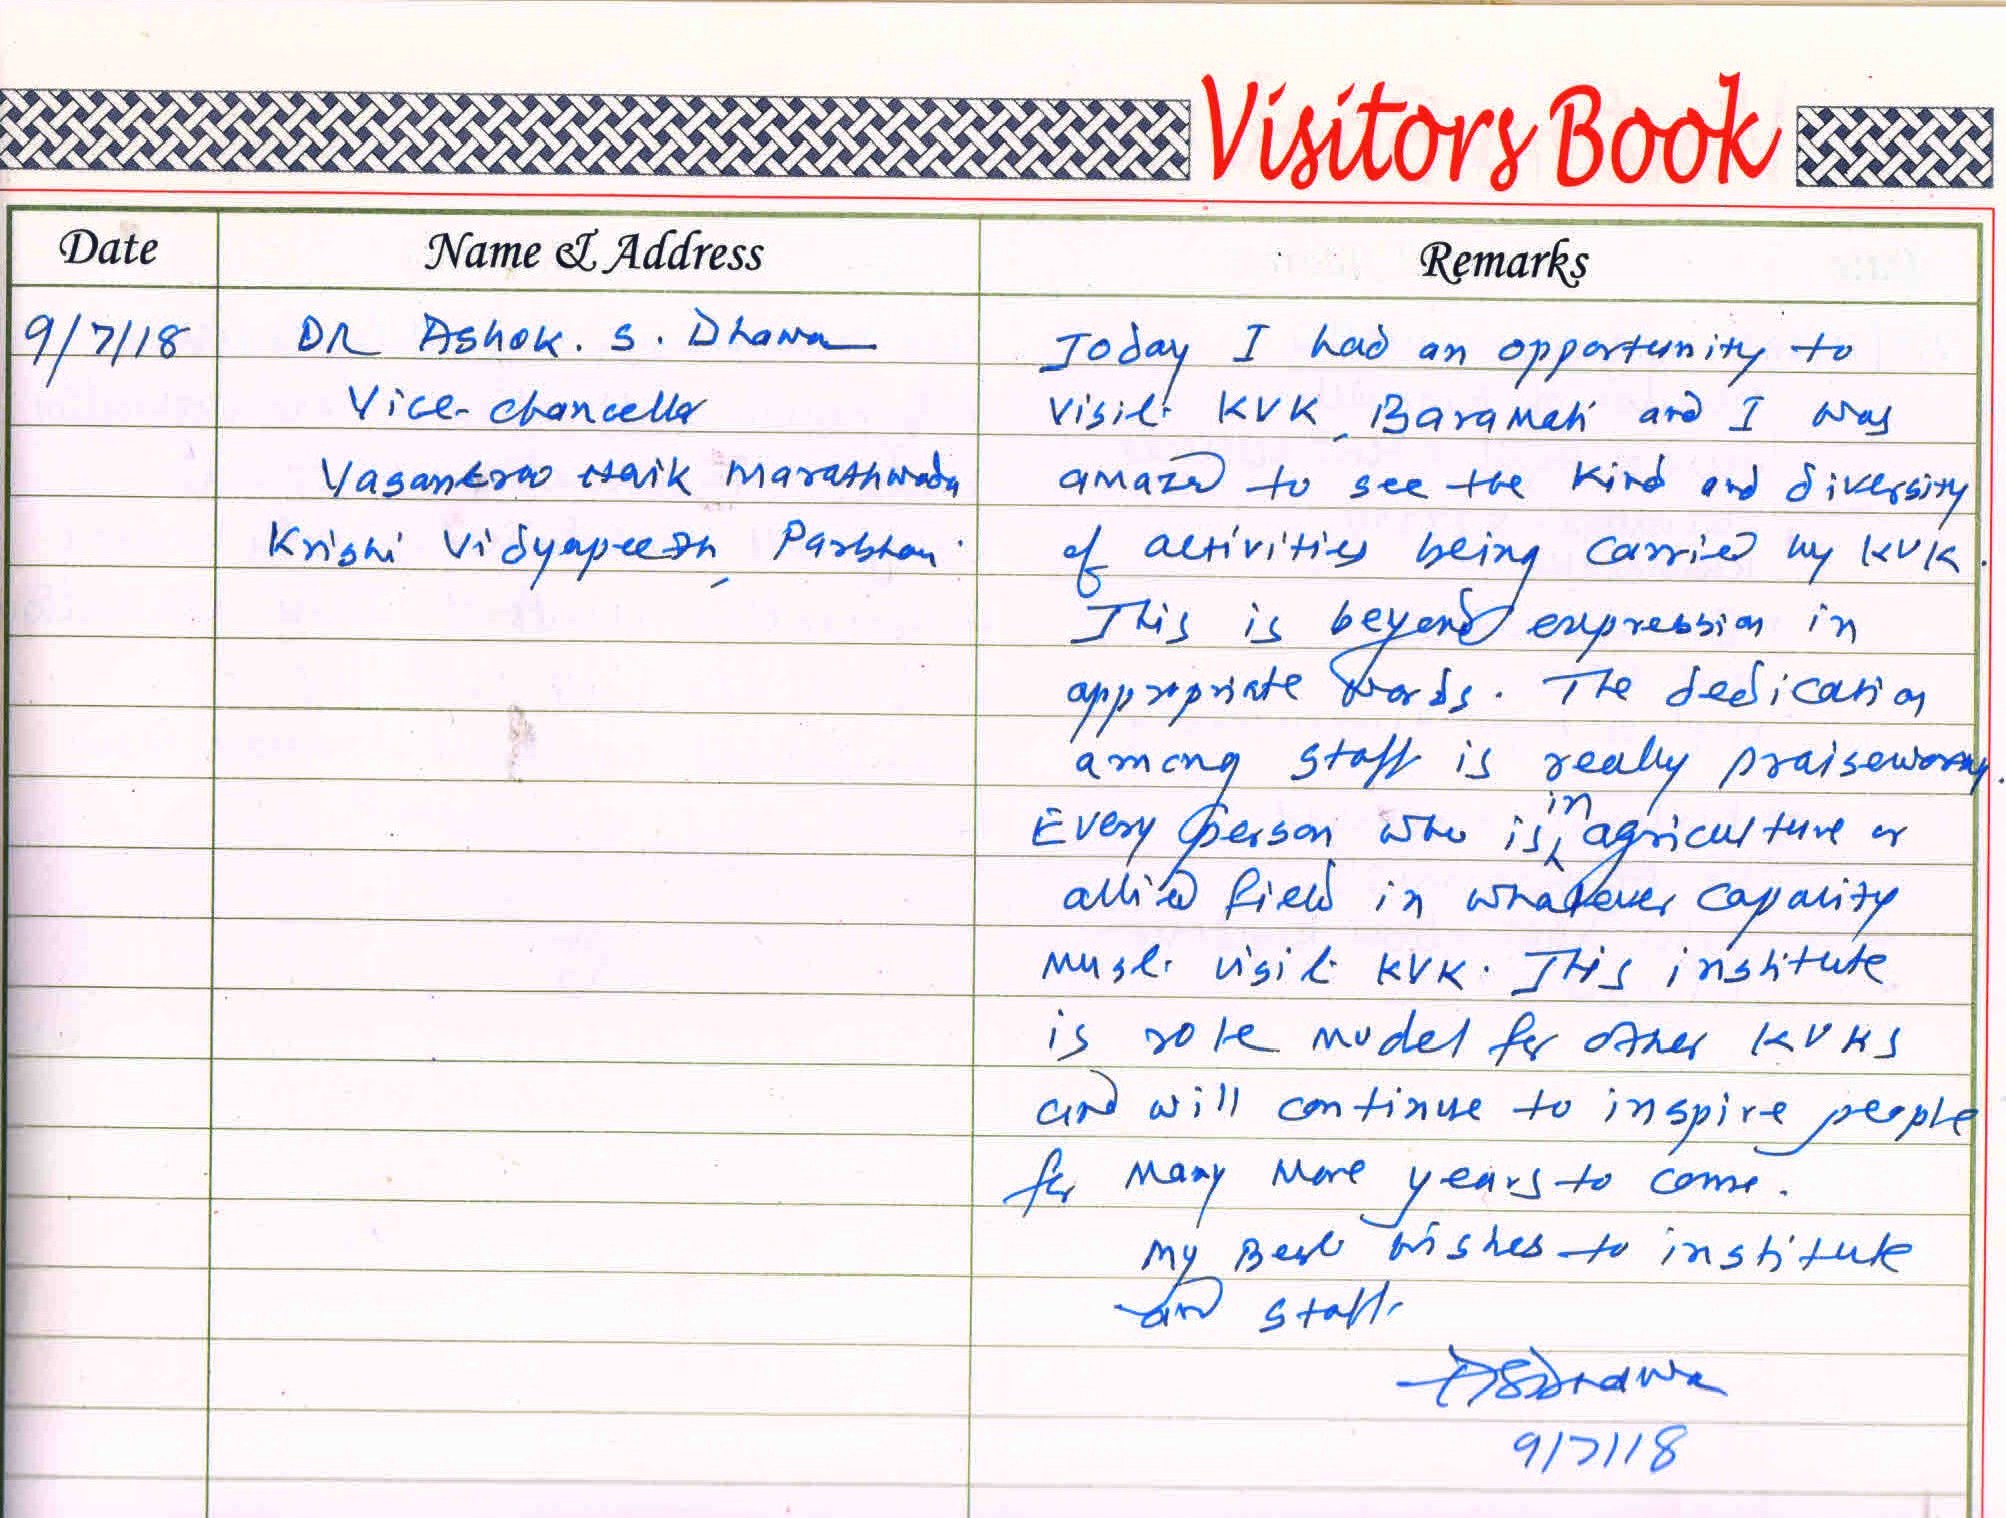 Visitors Book
Date Name & Address Remarks
9/7/18 DR Ashok. S. Dhawan Today I had an opportunity to
Vice-chancellor visit KVK, Baramati and I was
Vasantrao Naik Marathwada amazed to see the kind and diversity
Krishi Vidyapeeth, Parbhani. of activities being carried by KVK.
This is beyond expression in
appropriate words. The dedication
among staff is really praiseworthy.
Every person who is in agriculture or
allied field in whatever capacity
must visit KVK. This institute
is role model for other KVKs
and will continue to inspire people
for many more years to come.
My Best wishes to institute
and staff.
ASDhawan
9/7/18